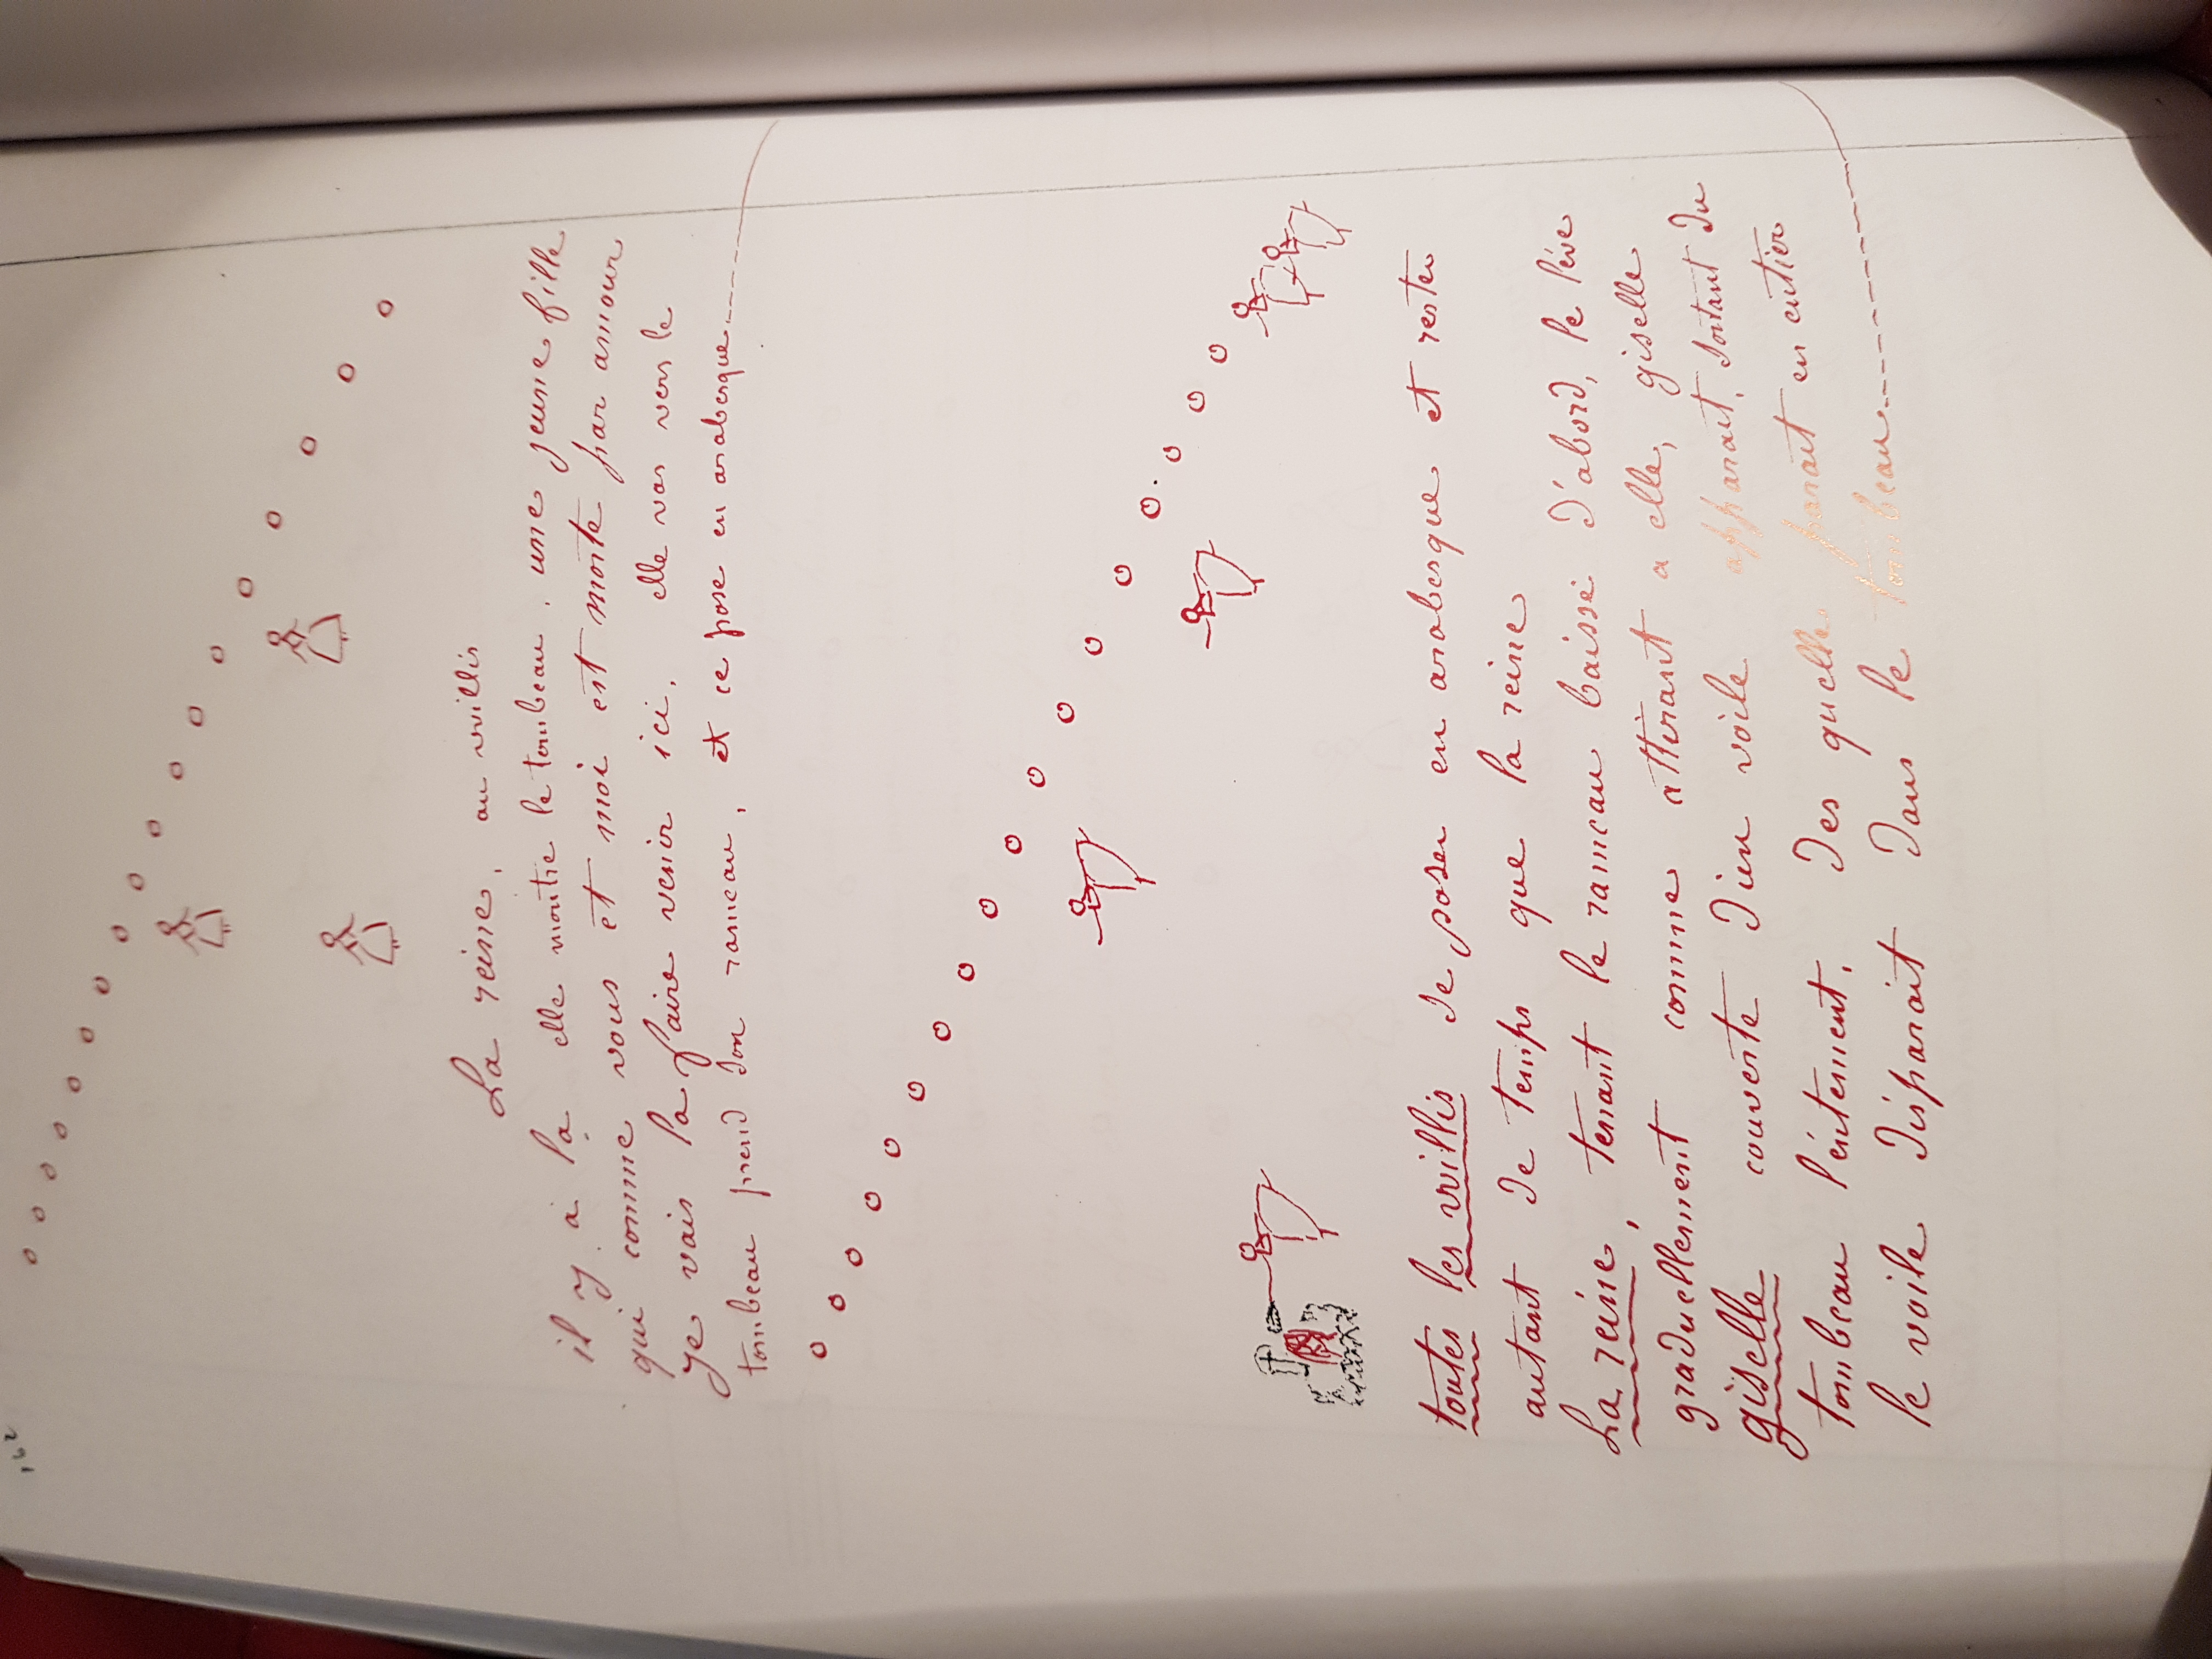 162
La reine, au willis
il y a la elle montre le tombeau, une jeune fille
qui comme vous et moi est morte par amour
je vais la faire venir ici, elle vas vers le
tombeau prend son rameau, et ce pose en arabesque
toutes les willis se poser en arabesque et rester
autant de temps que la reine
La reine, tenant le rameau baissé d'abord, le léve
graduellement comme attirant a elle, giselle
giselle couverte d'un voile apparait, sortant du
tombeau léntement. des quelle parait en entier
le voile disparait dans le tombeau